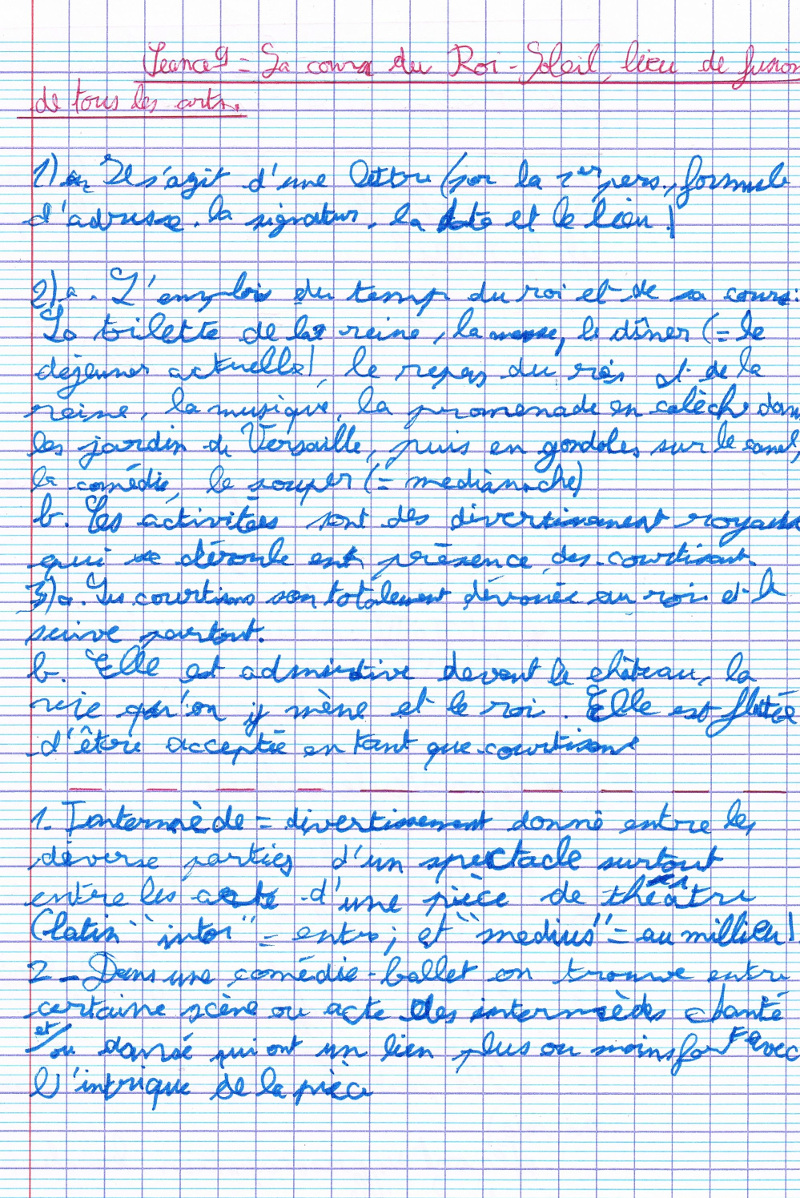 Séance 9 = La cour du Roi-Soleil, lieu de fusion
de tous les arts.
1) Il s'agit d'une lettre (par la 1er pers, formule
d'adresse, la signatur, la date et le lieu)
2) a. L'emplois du temp du roi et de sa cour:
La toilette de la reine, la messe, le dîner (= le
déjeuner actuelle), le repas du roi et de la
reine, la musique, la promenade en calèch dans
les jardin de Versaille, puis en gondoles sur le canal,
la comédie, le souper (= medianoche)
b. Les activitées sont des divertissement royaux
qui se déroule en présence des courtisant.
3) a. Les courtisans son totalement dévouée au roi et le
suive partout.
b. Elle est admirative devant le château, la
vie qu'on y mène et le roi. Elle est flattée
d'être acceptée en tant que courtisane
1. Intermède = divertissement donné entre les
diverse parties d'un spectacle surtout
entre les acte d'une pièce de théâtre
(latin "inter" = entre; et "medius" = au millieu)
2 - Dans une comédie-ballet on trouve entre
certaine scène ou acte des intermèdes chanté
et/ou dansé qui ont un lien plus ou moins fort avec
l'intrigue de la pièce